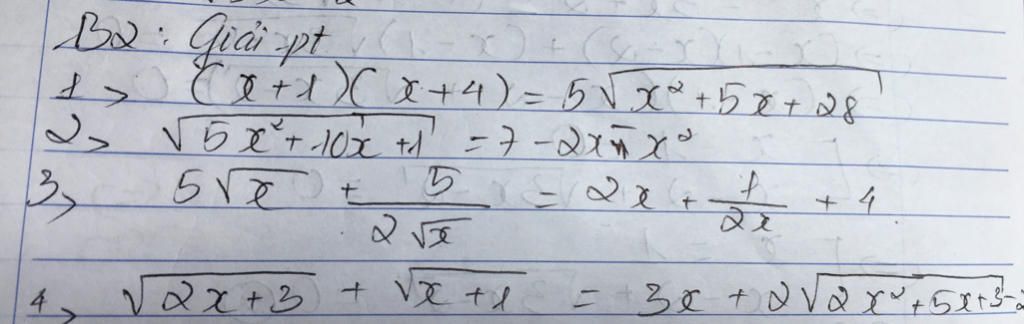 B2: Giải pt
1> (x+1)(x+4) = 5√(x²+5x+28)
2> √(5x²+10x+1) = 7-2x-x²
3> 5√x + 5/(2√x) = 2x + 1/(2x) + 4
4> √(2x+3) + √(x+1) = 3x + 2√(2x²+5x+3) -